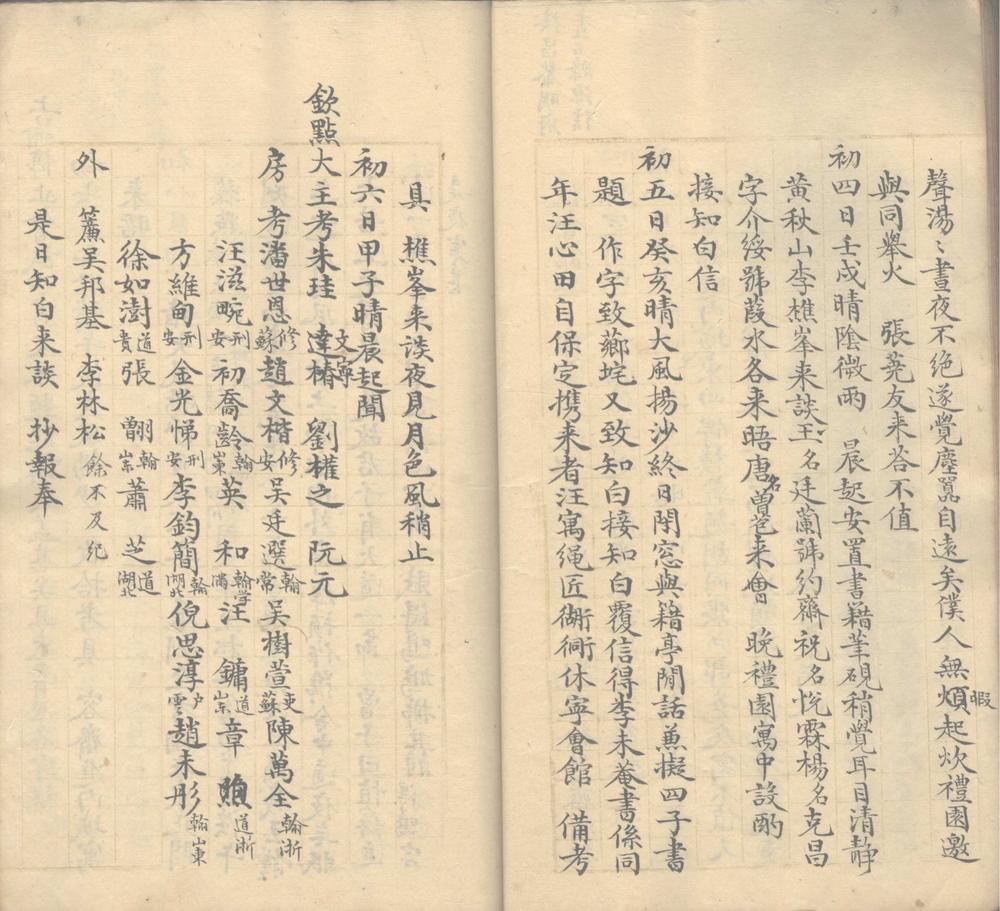 聲湯〻晝夜不绝遂覺塵囂自遠矣僕人無煩起炊禮園邀
暇
與同舉火　張蕘友来荅不值
初四日壬戌晴陰微雨　晨起安置書籍筆硯稍覺耳目清静
黄秋山李樵峯来談王名廷蘭號約齋祝名悅霖楊名克昌
字介綏號葭水各来晤唐名曽芑来會　晚禮園寓中設酌
接知白信
初五日癸亥晴大風揚沙終日閉窓與籍亭閒話兼擬四子書
題　作字致薌垞又致知白接知白覆信得李未菴書係同
年汪心田自保定携来者汪寓绳匠衚衕休寧會館　備考
具　樵峯来談夜見月色風稍止
初六日甲子晴晨起聞
欽點大主考朱珪　達椿文寧　劉權之　阮元
房　考潘世恩修蘇趙文楷修安吴廷選翰常吴樹萱吏蘇陳萬全翰浙
汪滋畹刑安初喬齡翰東英　和翰学滿汪　鏞道東章　煦道浙
方維甸刑安金光悌刑安李鈞簡翰湖北倪思淳户雲趙未彤翰山東
徐如澍道貴張　翻翰東蕭　芝道湖北
外　簾吴邦基　李林松餘不及纪
是日知白来談　抄報奉